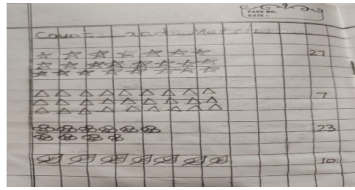 PAGE NO.
DATE:
Count and
27
7
23
10